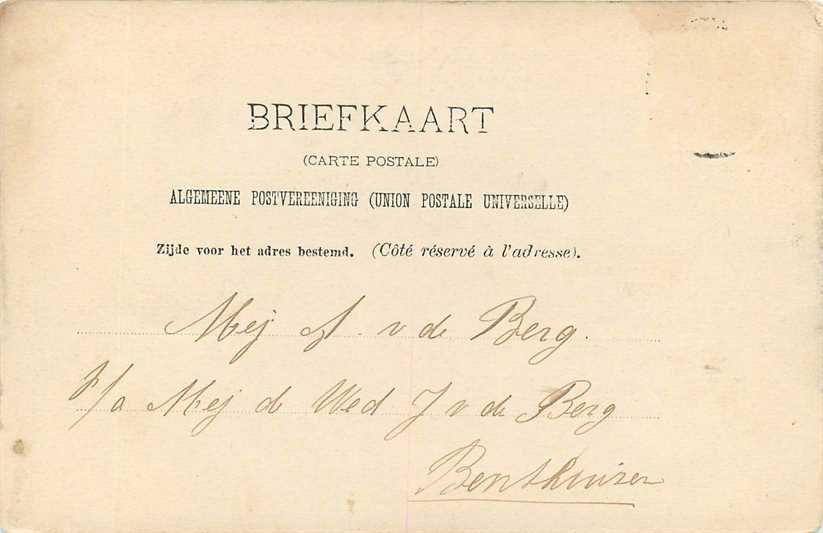 BRIEFKAART
(CARTE POSTALE)
ALGEMEENE POSTVEREENIGING (UNION POSTALE UNIVERSELLE)
Zijde voor het adres bestemd. (Côté réservé à l'adresse).
Mej A. v de Berg.
p/a Mej de Wed J v de Berg
Benthuizen